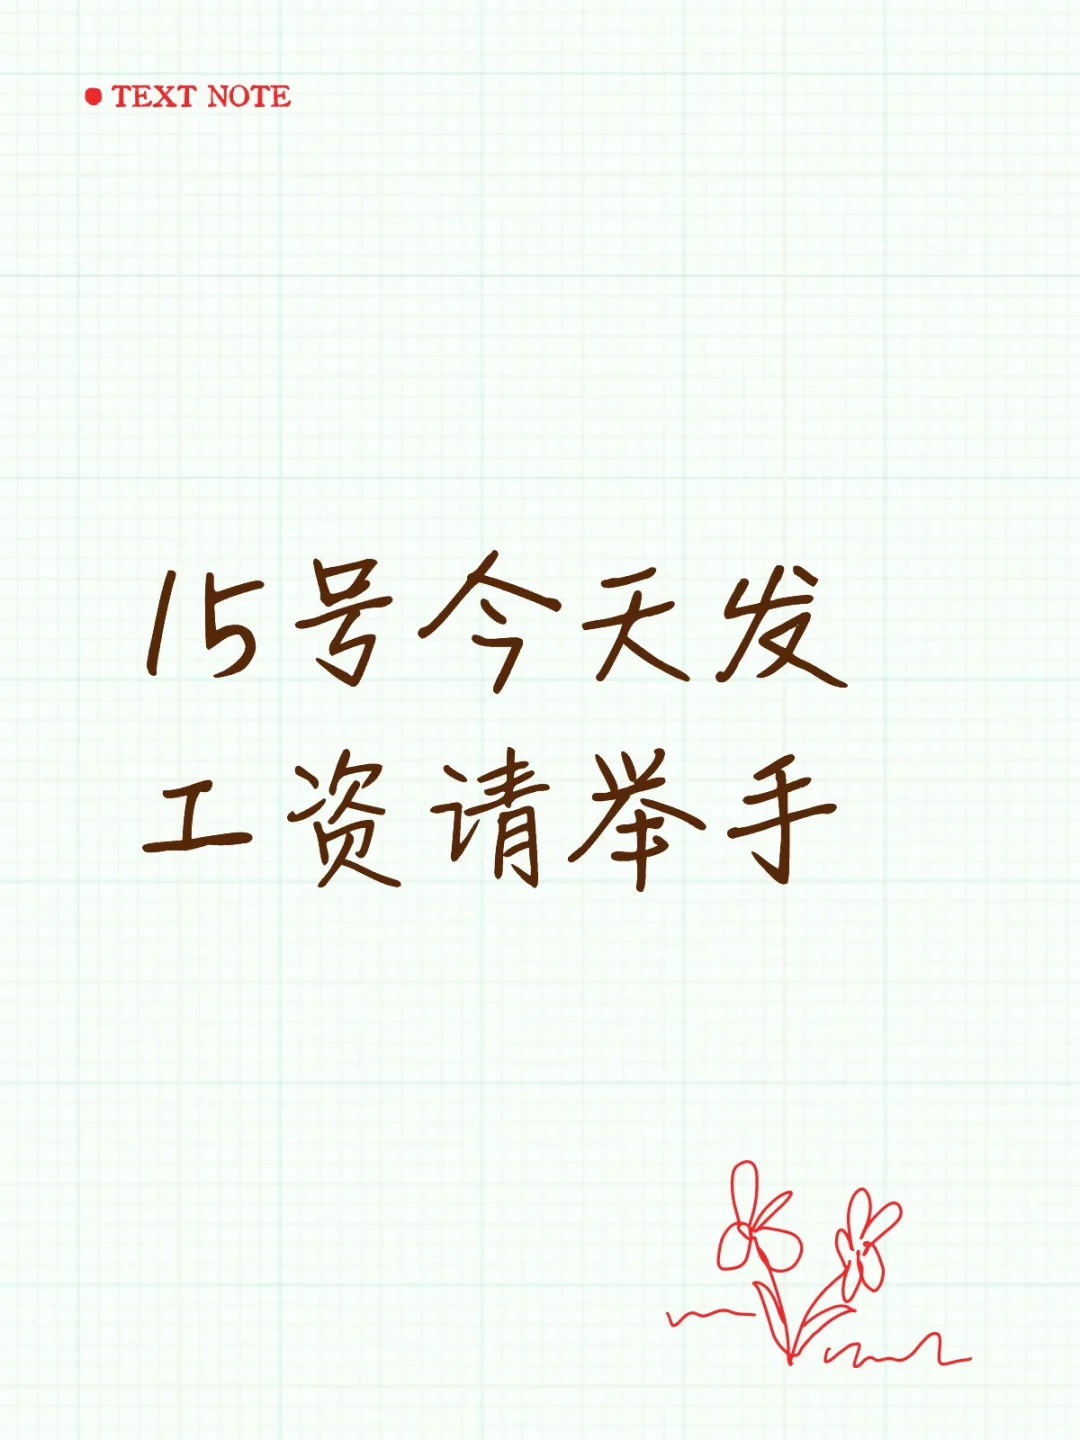 TEXT NOTE
15号今天发
工资请举手